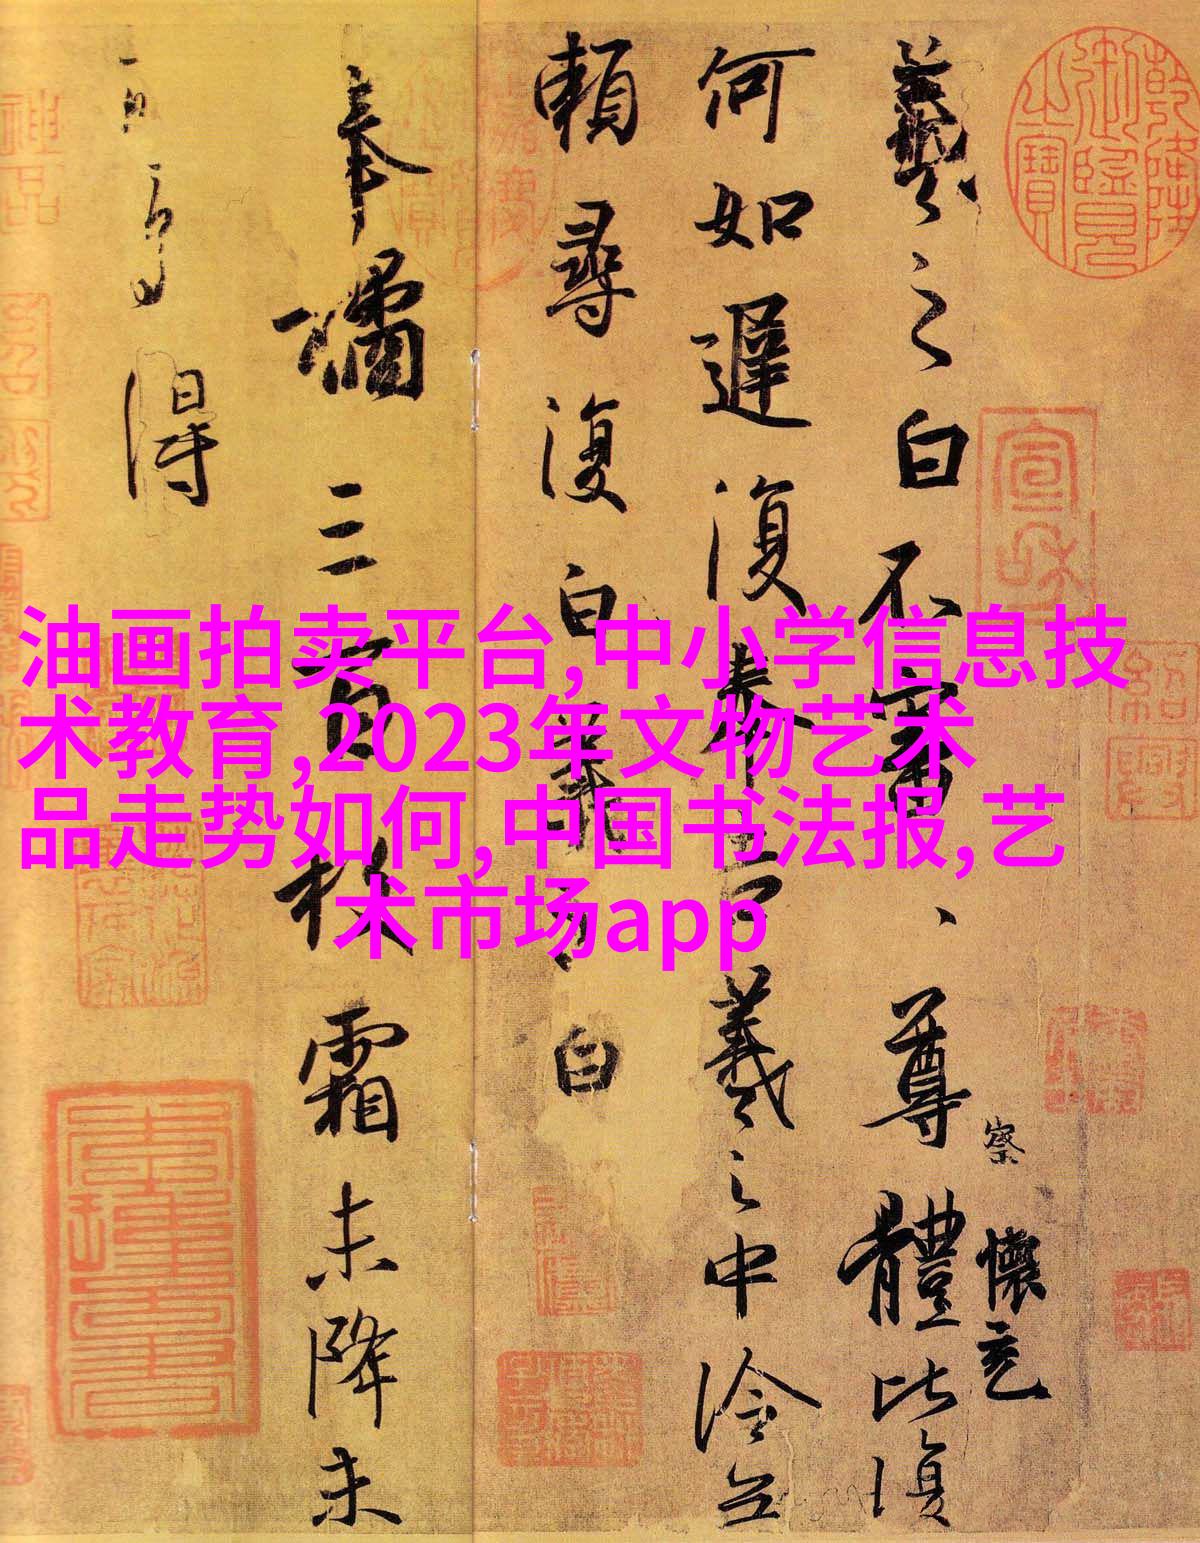 油画拍卖平台,中小学信息技
术教育,2023年文物艺术
品走势如何,中国书法报,艺
术市场app
乾隆御覽之寶
宣和
紹興
察
懷充
羲之白不審、尊體比復
何如遲復奉告羲之中冷無
賴尋復白羲之白
奉橘三百枚霜未降未
可多得
神品